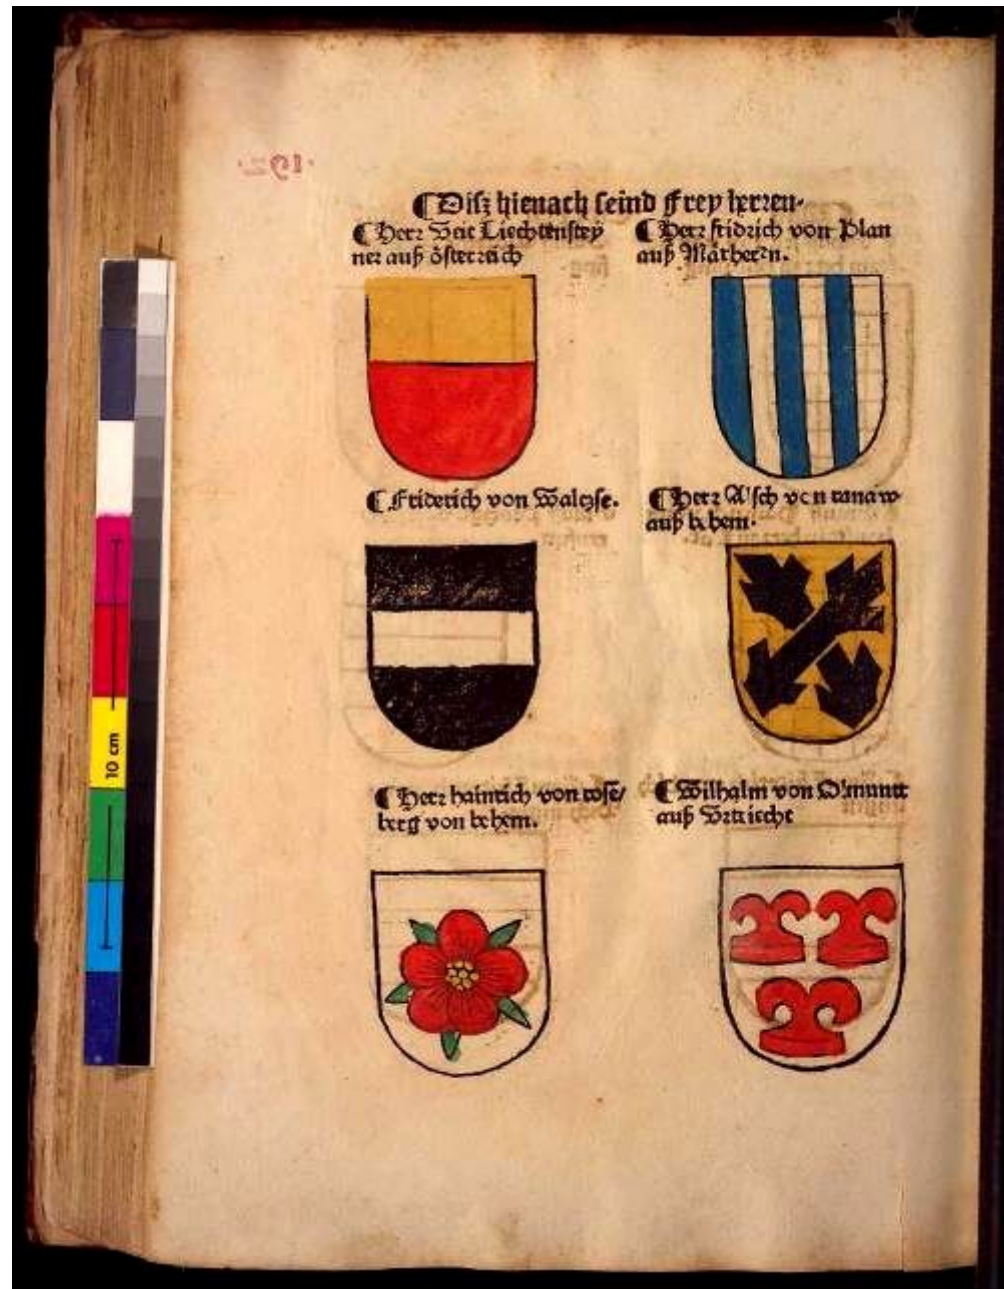 ¶Disz hienach seind Frey herren.
¶ Herr Veit Liechtenstey
ner auß österreich
¶ Herr fridrich von Plan
auß Märhern.
¶ Friderich von Waltzse.
¶ Herr A'sch von
auß behem.
¶ Herr hainrich von rose/
berg von behem.
¶ Wilhalm von
auß
10 cm